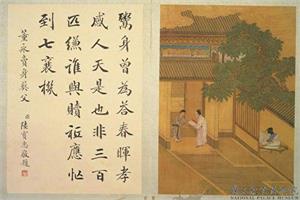 鬻身曾為答春暉孝
感人天是也非三百
匹縑誰與贖祗應忙
到七襄機
董永賣身葬父
臣陸寶忠敬題
國立故宮博物院
NATIONAL PALACE MUSEUM